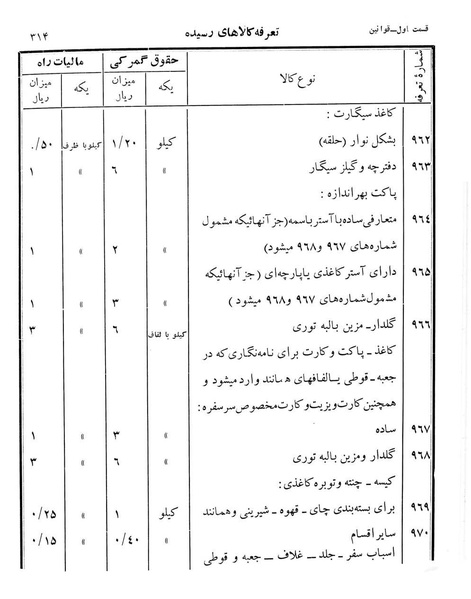 قسمت اول_قوانین
تعرفه کالاهای رسیده
۳۱۴
شمارهٔ تعرفه
نوع کالا
حقوق گمرکی
مالیات راه
یکه
میزان ریال
یکه
میزان ریال
کاغذ سیگارت :
۹۶۲ بشکل نوار (حلقه) کیلو ۱/۲۰ کیلو با ظرف ۰/۵۰
۹۶۳ دفترچه و گیلز سیگار » ۶ » ۱
پاکت بهر اندازه :
۹۶۴ متعارفی ساده با آستر باسمه (جز آنهائیکه مشمول
شماره‌های ۹۶۷ و ۹۶۸ میشود) » ۲ » ۱
۹۶۵ دارای آستر کاغذی یا پارچه‌ای (جز آنهائیکه
مشمول شماره‌های ۹۶۷ و ۹۶۸ میشود ) » ۳ » ۱
۹۶۶ گلدار_ مزین بالبه توری کیلو با لفاف ۶ » ۳
کاغذ _ پاکت و کارت برای نامه‌نگاری که در
جعبه _ قوطی یا لفافهای همانند وارد میشود و
همچنین کارت ویزیت و کارت مخصوص سر سفره :
۹۶۷ ساده » ۳ » ۱
۹۶۸ گلدار و مزین بالبه توری » ۶ » ۳
کیسه _ چنته و توبره کاغذی :
۹۶۹ برای بسته‌بندی چای _ قهوه _ شیرینی و همانند کیلو ۱ » ۰/۲۵
۹۷۰ سایر اقسام » ۰/۴۰ » ۰/۱۵
اسباب سفر _ جلد _ غلاف _ جعبه و قوطی